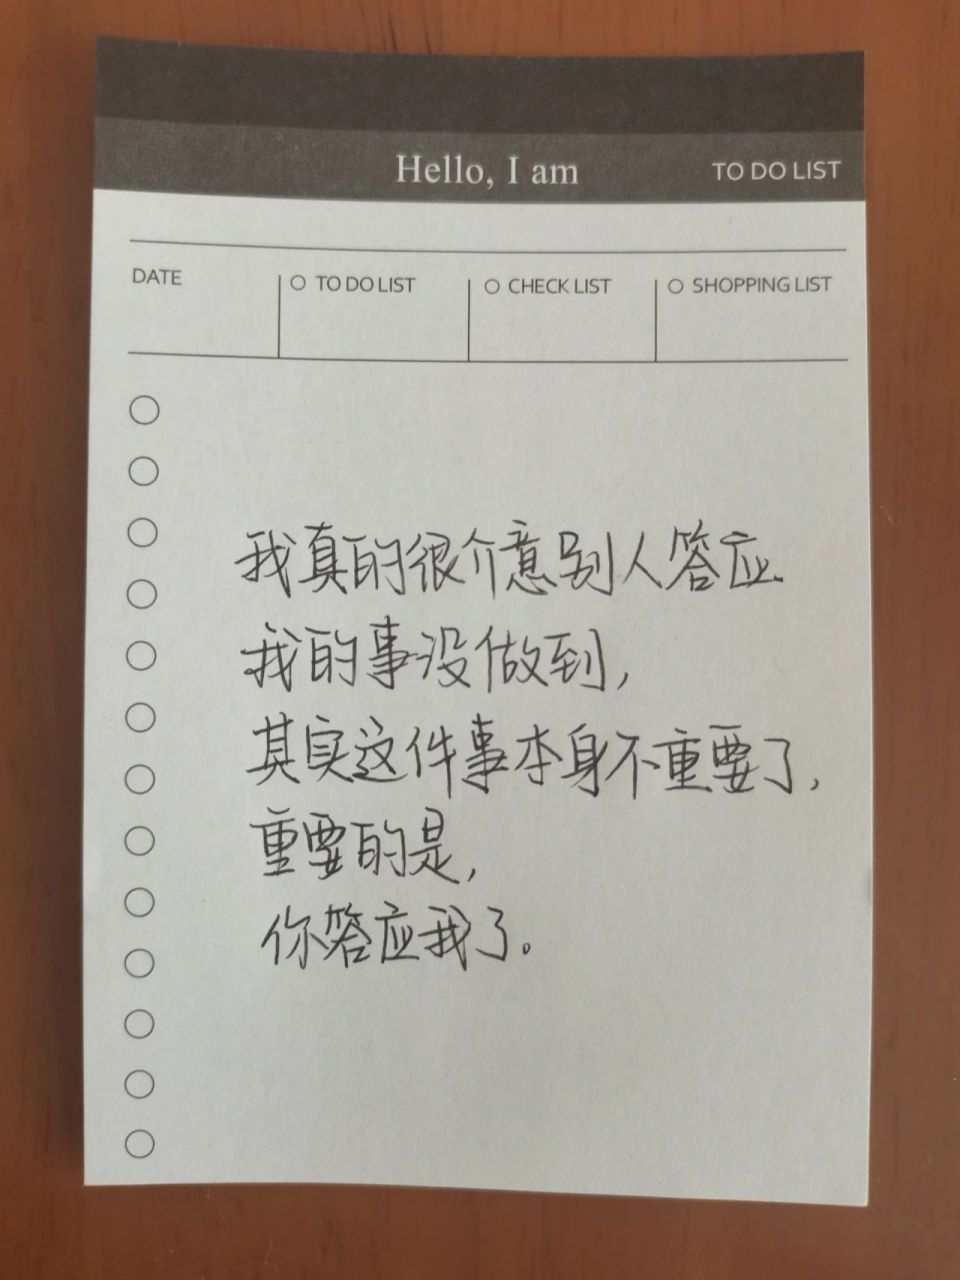 Hello, I am
TO DO LIST
DATE
TO DO LIST
CHECK LIST
SHOPPING LIST
我真的很介意别人答应
我的事没做到,
其实这件事本身不重要了,
重要的是,
你答应我了。